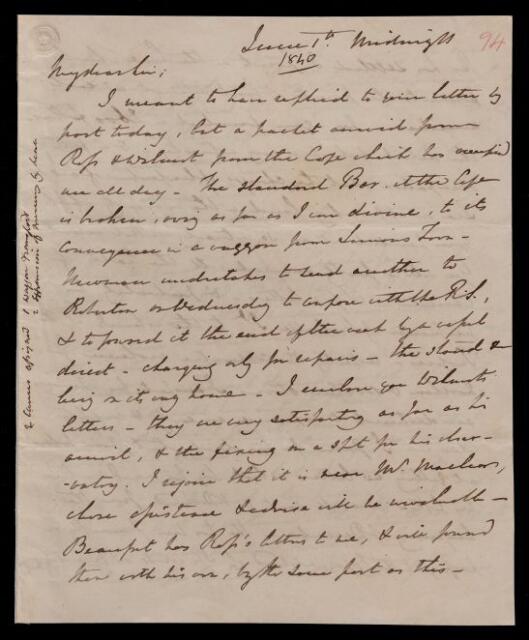 June 1st. Midnight
1840
94
My dear Sir;
I meant to have replied to your letter by
post today, but a packet arrived from
Ross & Wilmot from the Cape which has occupied
me all day - The standard Bar. at the Cape
is broken, owing as far as I can divine, to its
conveyance in a waggon from Simons Town -
Newman undertakes to send another to
Roberton on Wednesday to compare with the R.S.,
& to forward it the end of the week by a vessel
direct - charging only for repairs - the stand &
being on its way home - I enclose you Wilmot's
letters - they are very satisfactory as far as his
arrival, & the fixing on a spot for his obser-
-vatory. I rejoice that it is near Mr. Maclear,
whose assistance & advice will be invaluable -
Beaufort has Ross's letters to me, & will forward
them with his own, by the same post as this -
2 causes assigned 1 waggon transport
2 expansion of mercury by heat